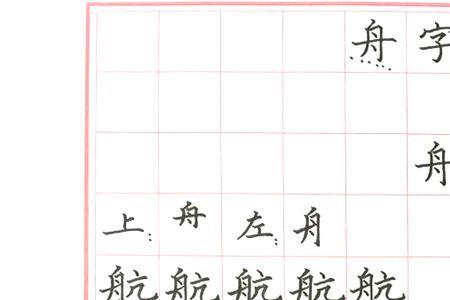 舟字
舟
上：舟 左：舟
航航航航航